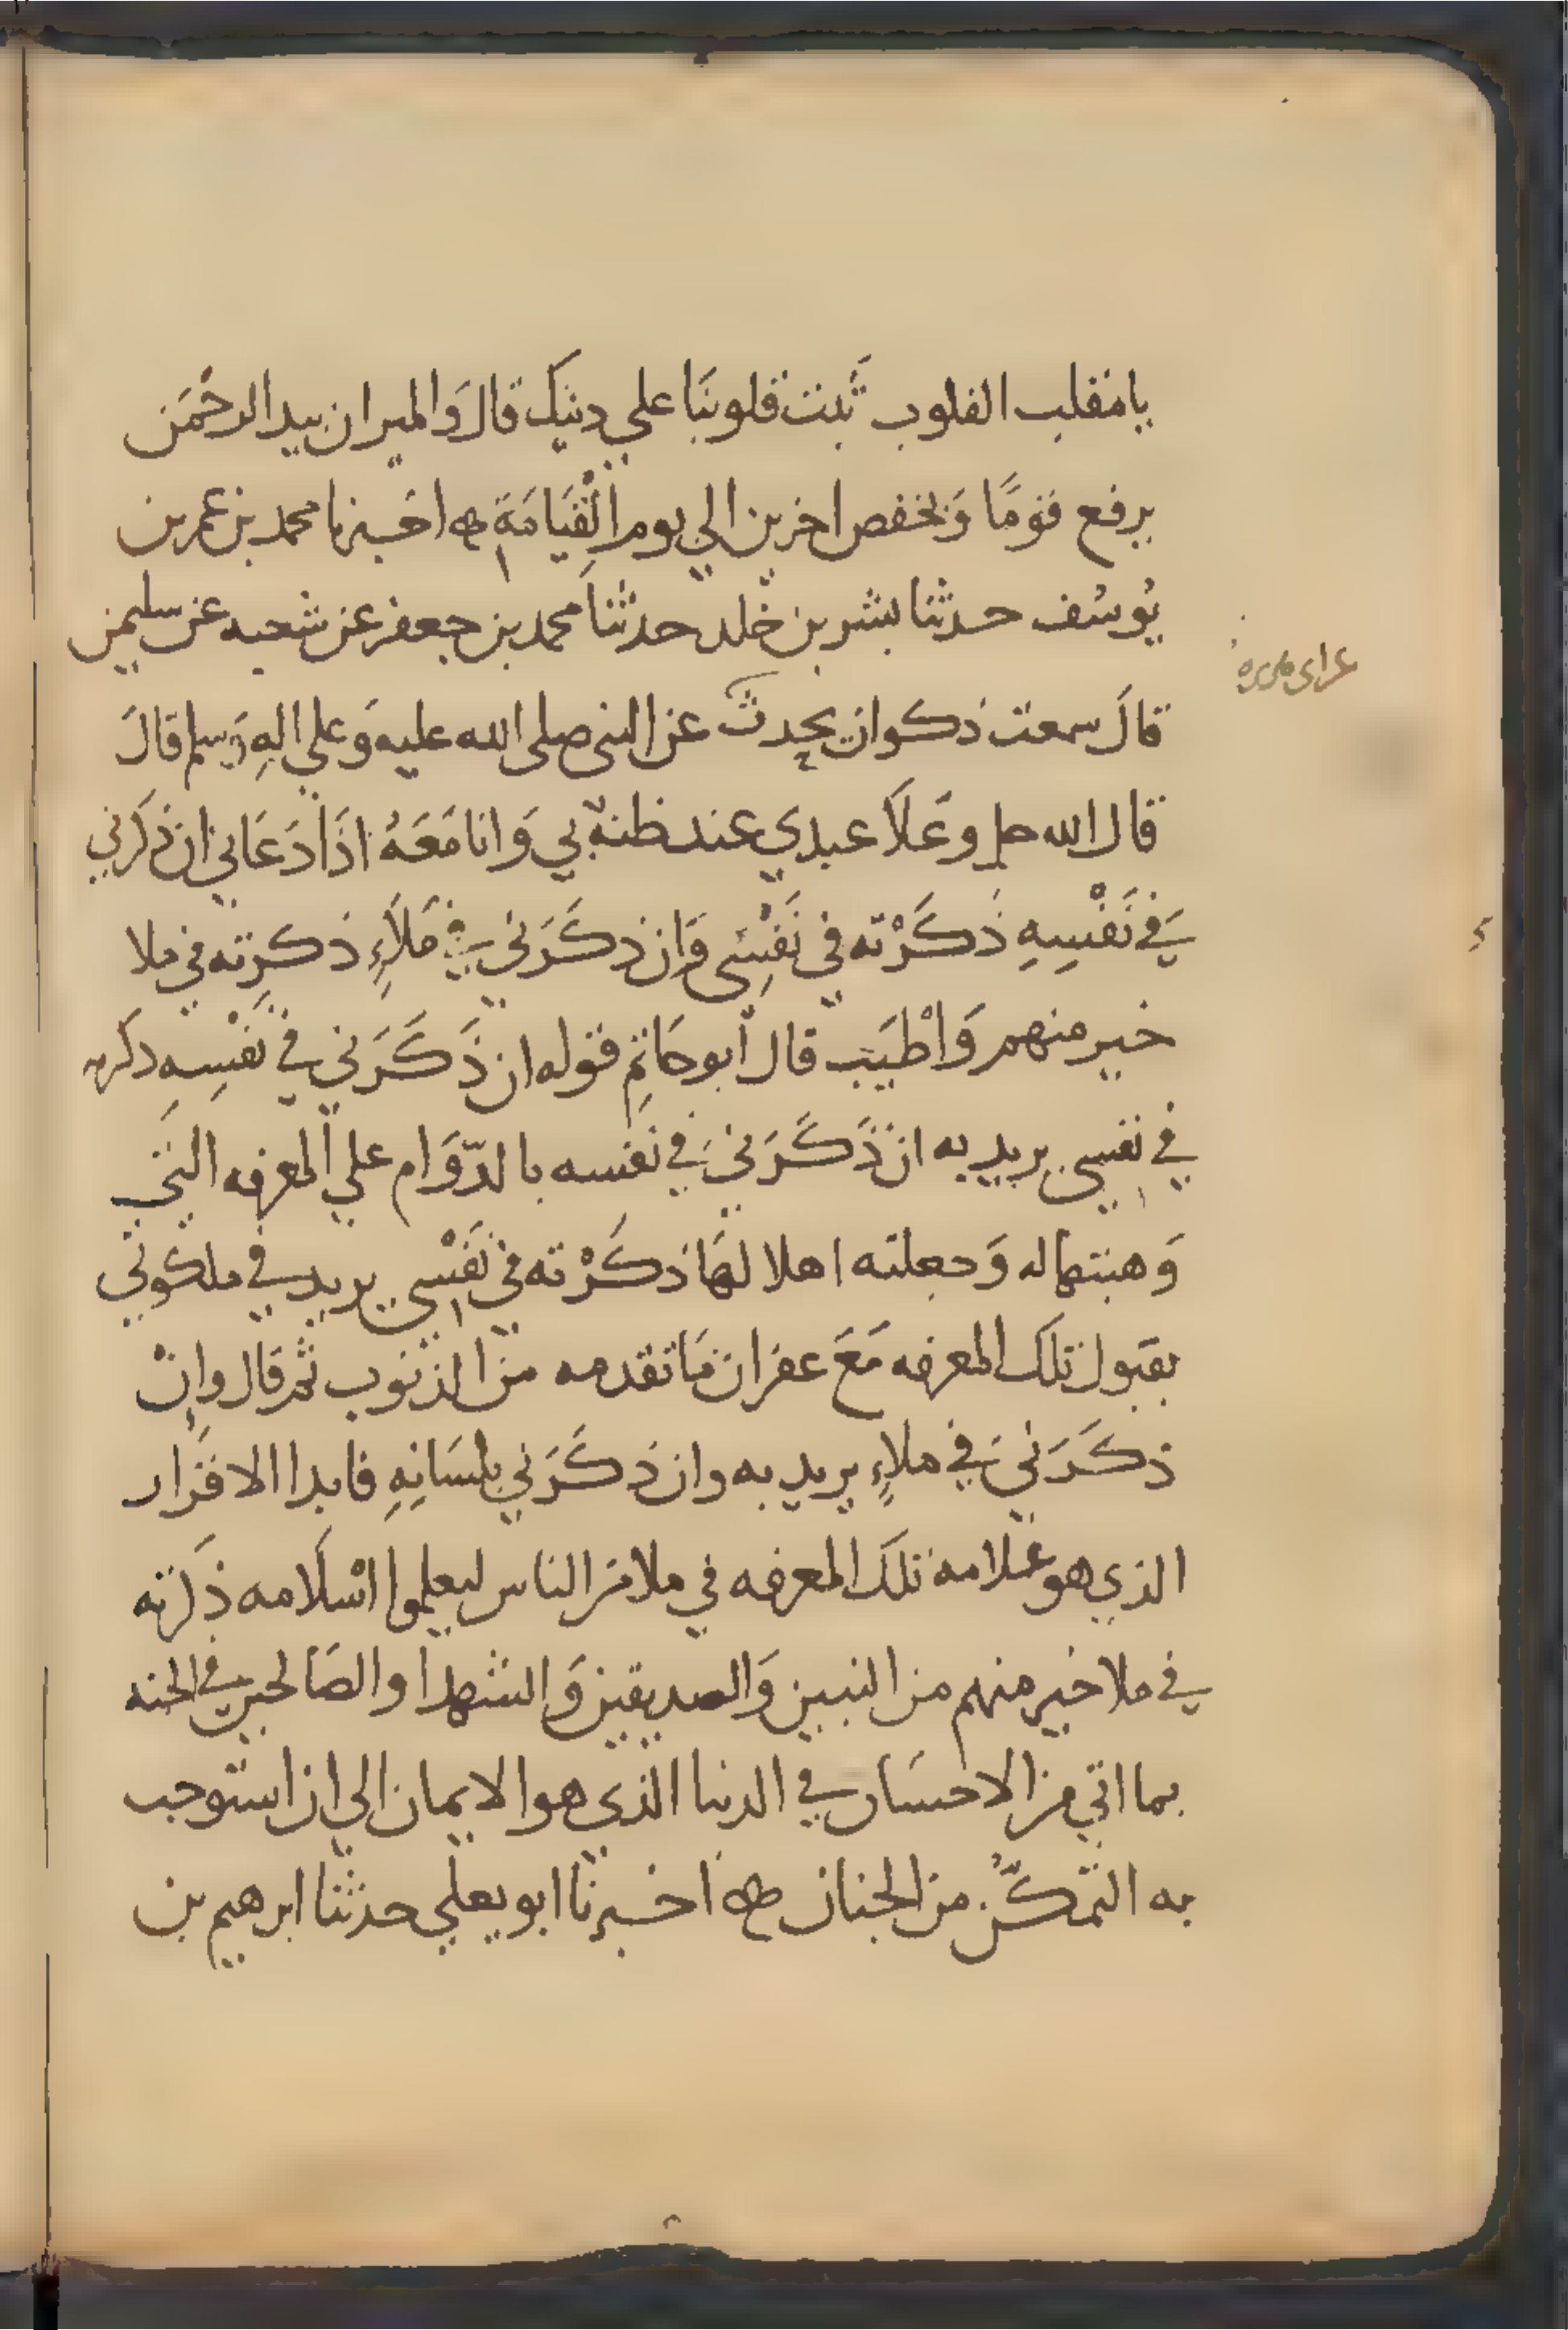 يا مقلب القلوب ثَبت قلوبنَا علي دينك قالَ وَالميزان بيد الرحْمَن
يرفع قومًا وَيخفض اخرين الي يوم الْقِيَامَةِ ه اخبرنا محمد بن عمر بن
يُوسُف حدثنا بشر بن خلد حدثنا محمد بن جعفر عن شعبه عن سليمن
عن ابي هريرة
قالَ سمعت ذكوان يحدث عن النبي صلى الله عليه وَعلي الهِ وَسلم قالَ
قال الله جل وعَلَا عبدي عند ظنه بي وَانا مَعَهُ اذَا دَعَاني ان ذكَرني
في نَفْسِهِ ذَكَرْته في نَفْسِي وَان ذكَرَني في مَلَاءٍ ذكرته في ملا
خير منهم وَاطْيَب قال ابو حَاتِم قوله ان ذَكَرَني في نَفْسِهِ ذكرته
في نفسي يريد به ان ذَكَرَني في نفسه بالدّوَام علي المعرفه التي
وَهبتها له وَجعلته اهلا لهَا ذكَرْته في نَفْسِي يريد في ملكوتي
بقبول تلكَ المعرفه مَعَ غفران مَا تقدمه من الذنوب ثم قال وانْ
ذكَرَني في ملاءٍ يريد به وان ذكَرَني بلسَانِهِ فابدا الاقرَار
الذي هو علامه تلكَ المعرفه في ملا من الناس ليعلموا اسْلَامه ذكَرته
في ملا خير منهم من النبيين وَالصديقين وَالشهدا والصَالحين في الجنه
بما اتي من الاحسَان في الدنيا الذي هو الايمان الي ان استوجب
به التمكّن من الجنان ه اخبرنا ابو يعلي حدثنا ابرهيم بن